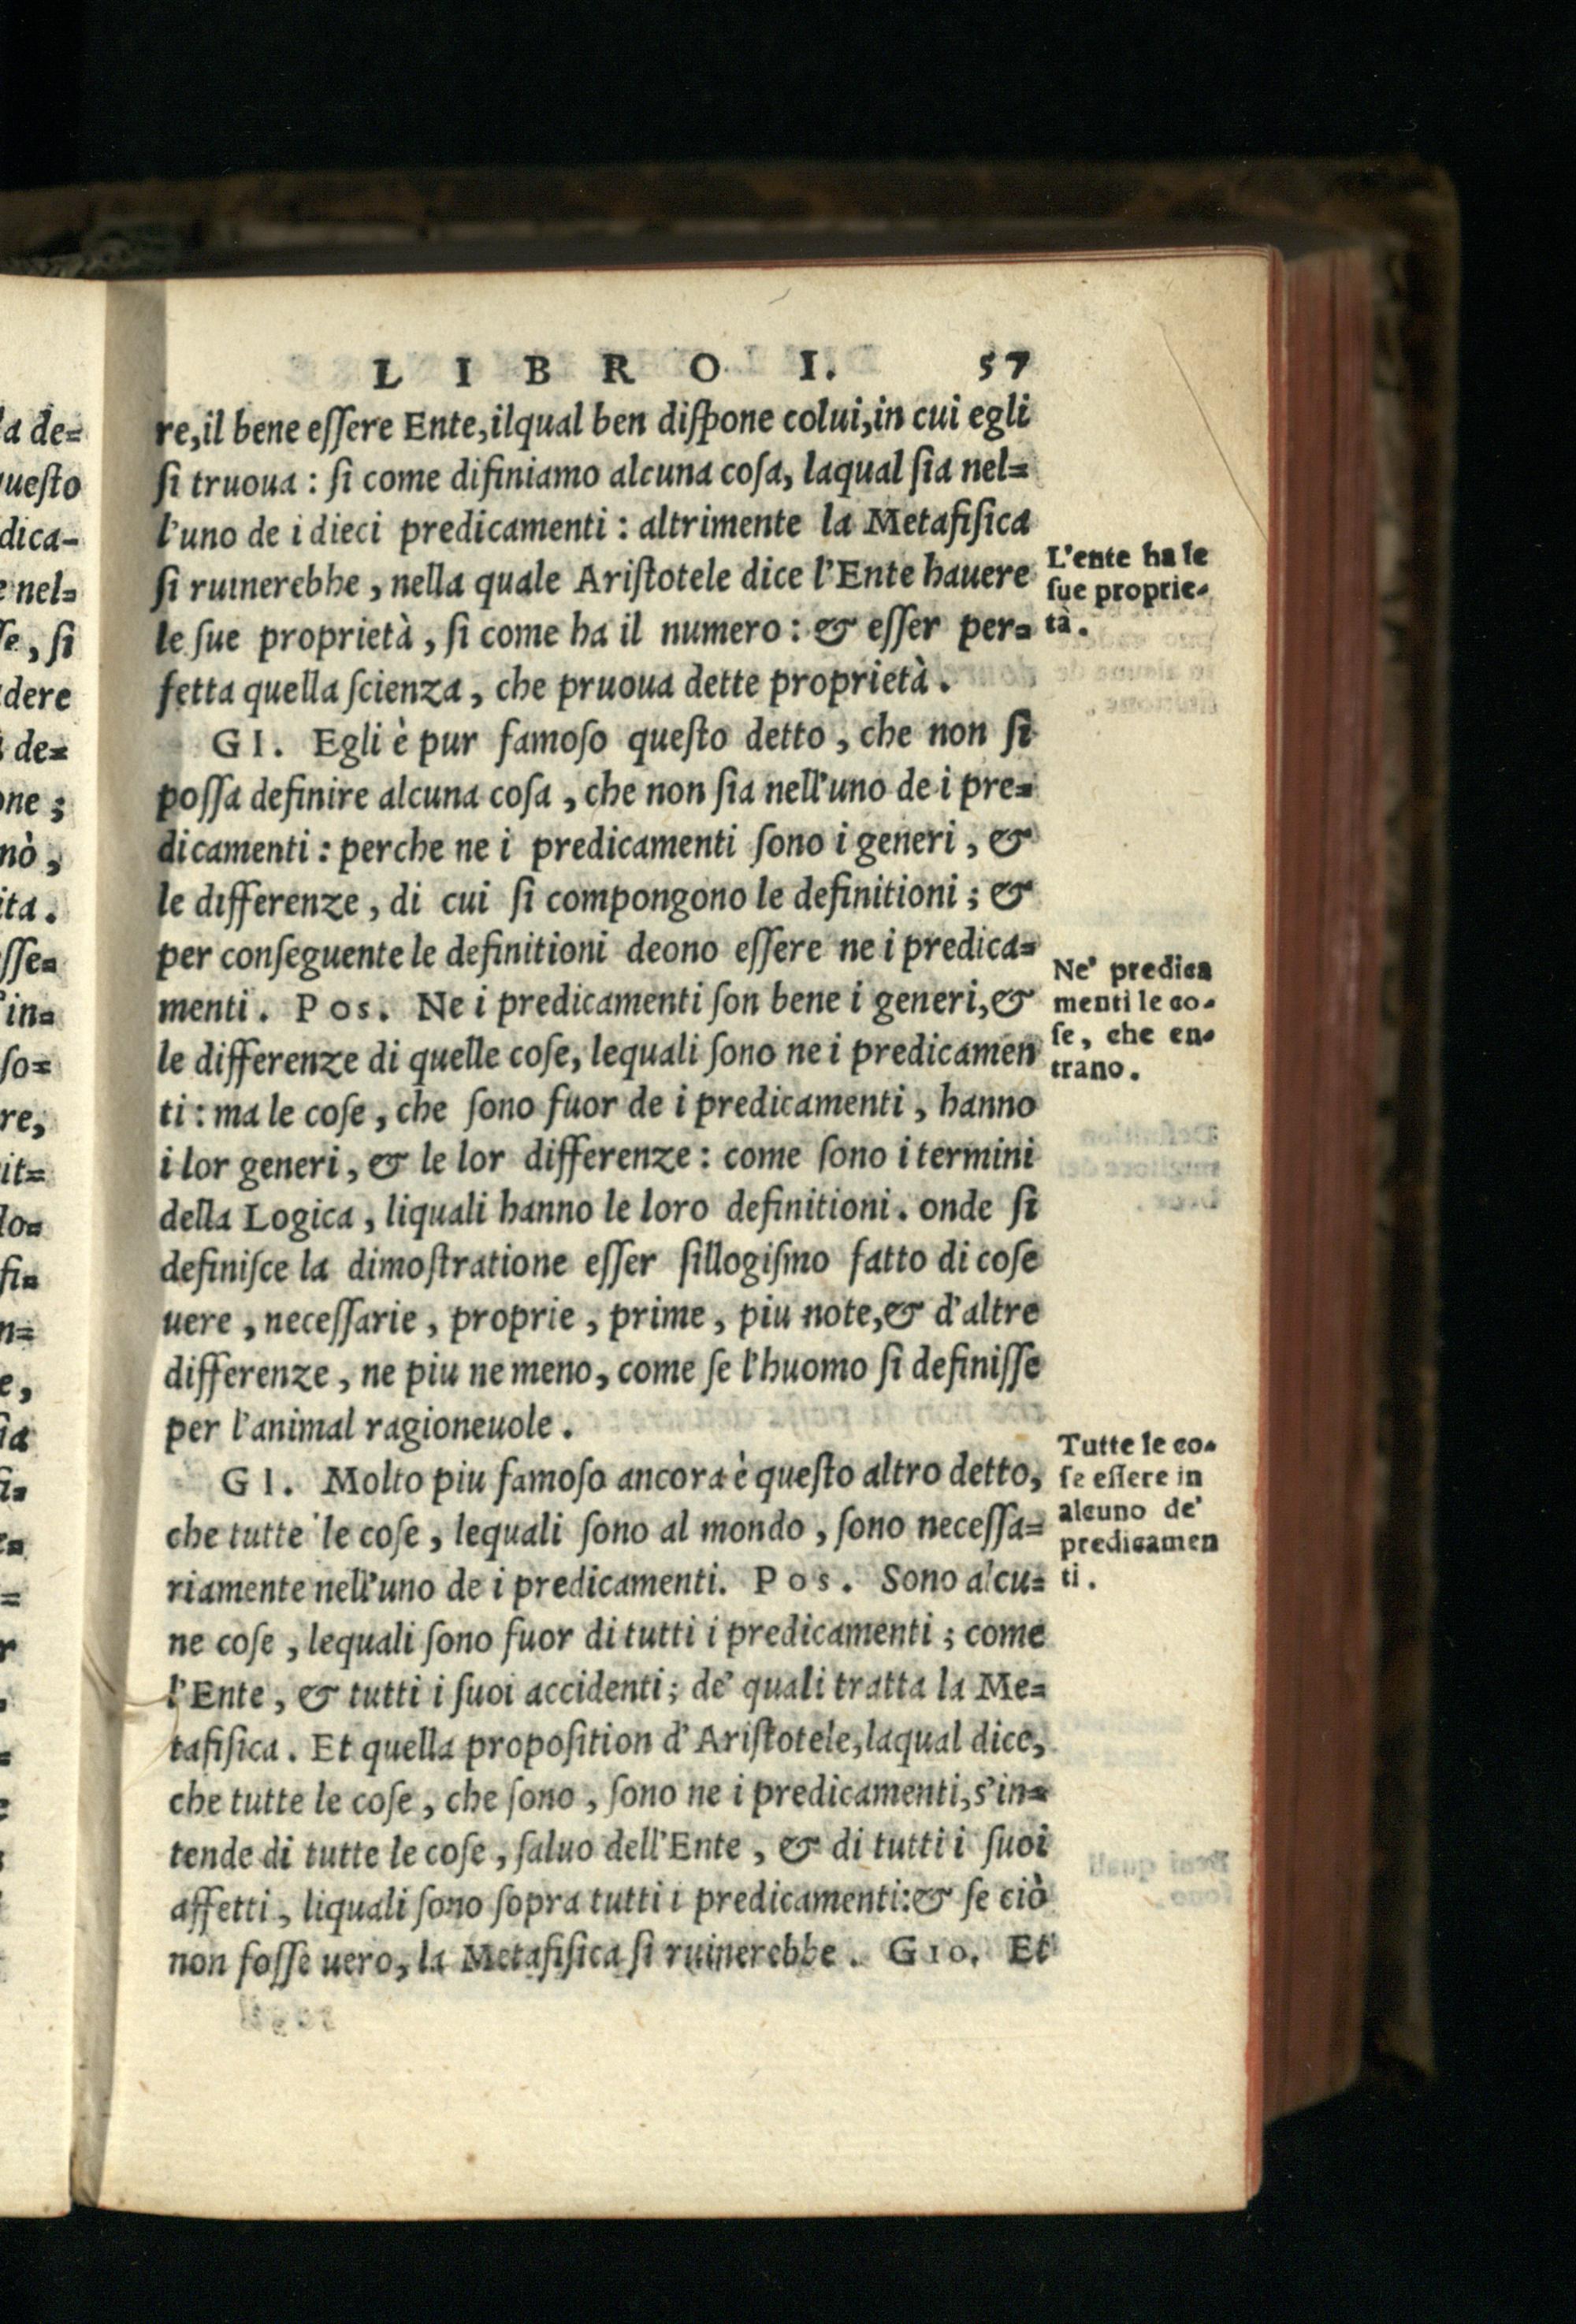 LIBRO I. 57
re, il bene eſſere Ente, ilqual ben diſpone colui, in cui egli
ſi truoua : ſi come difiniamo alcuna coſa, laqual ſia nel=
l'uno de i dieci predicamenti : altrimente la Metafiſica
ſi ruinerebbe, nella quale Ariſtotele dice l'Ente hauere
le ſue proprietà, ſi come ha il numero : & eſſer per=
fetta quella ſcienza, che pruoua dette proprietà.
GI. Egli è pur famoſo queſto detto, che non ſi
poſſa definire alcuna coſa, che non ſia nell'uno de i pre=
dicamenti : perche ne i predicamenti ſono i generi, &
le differenze, di cui ſi compongono le definitioni ; &
per conſeguente le definitioni deono eſſere ne i predica=
menti. Pos. Ne i predicamenti ſon bene i generi, &
le differenze di quelle coſe, lequali ſono ne i predicamen
ti : ma le coſe, che ſono fuor de i predicamenti, hanno
i lor generi, & le lor differenze : come ſono i termini
della Logica, liquali hanno le loro definitioni. onde ſi
definiſce la dimoſtratione eſſer ſillogiſmo fatto di coſe
uere, neceſſarie, proprie, prime, piu note, & d'altre
differenze, ne piu ne meno, come ſe l'huomo ſi definiſſe
per l'animal ragioneuole.
GI. Molto piu famoſo ancora è queſto altro detto,
che tutte le coſe, lequali ſono al mondo, ſono neceſſa=
riamente nell'uno de i predicamenti. Pos. Sono alcu=
ne coſe, lequali ſono fuor di tutti i predicamenti ; come
l'Ente, & tutti i ſuoi accidenti ; de' quali tratta la Me=
tafiſica. Et quella propoſition d'Ariſtotele, laqual dice,
che tutte le coſe, che ſono, ſono ne i predicamenti, s'in=
tende di tutte le coſe, ſaluo dell'Ente, & di tutti i ſuoi
affetti, liquali ſono ſopra tutti i predicamenti : & ſe ciò
non foſſe uero, la Metafiſica ſi ruinerebbe. GIO. Et
L'ente ha le
ſue proprie-
tà.
Ne' predica
menti le co-
ſe, che en-
trano.
Tutte le co-
ſe eſſere in
alcuno de'
predicamen
ti.
la de=
queſto
dica-
nel=
ſi
dere
de=
one ;
nò,
ita.
eſſe=
in=
ſo=
re,
it=
do=
fi=
n=
e,